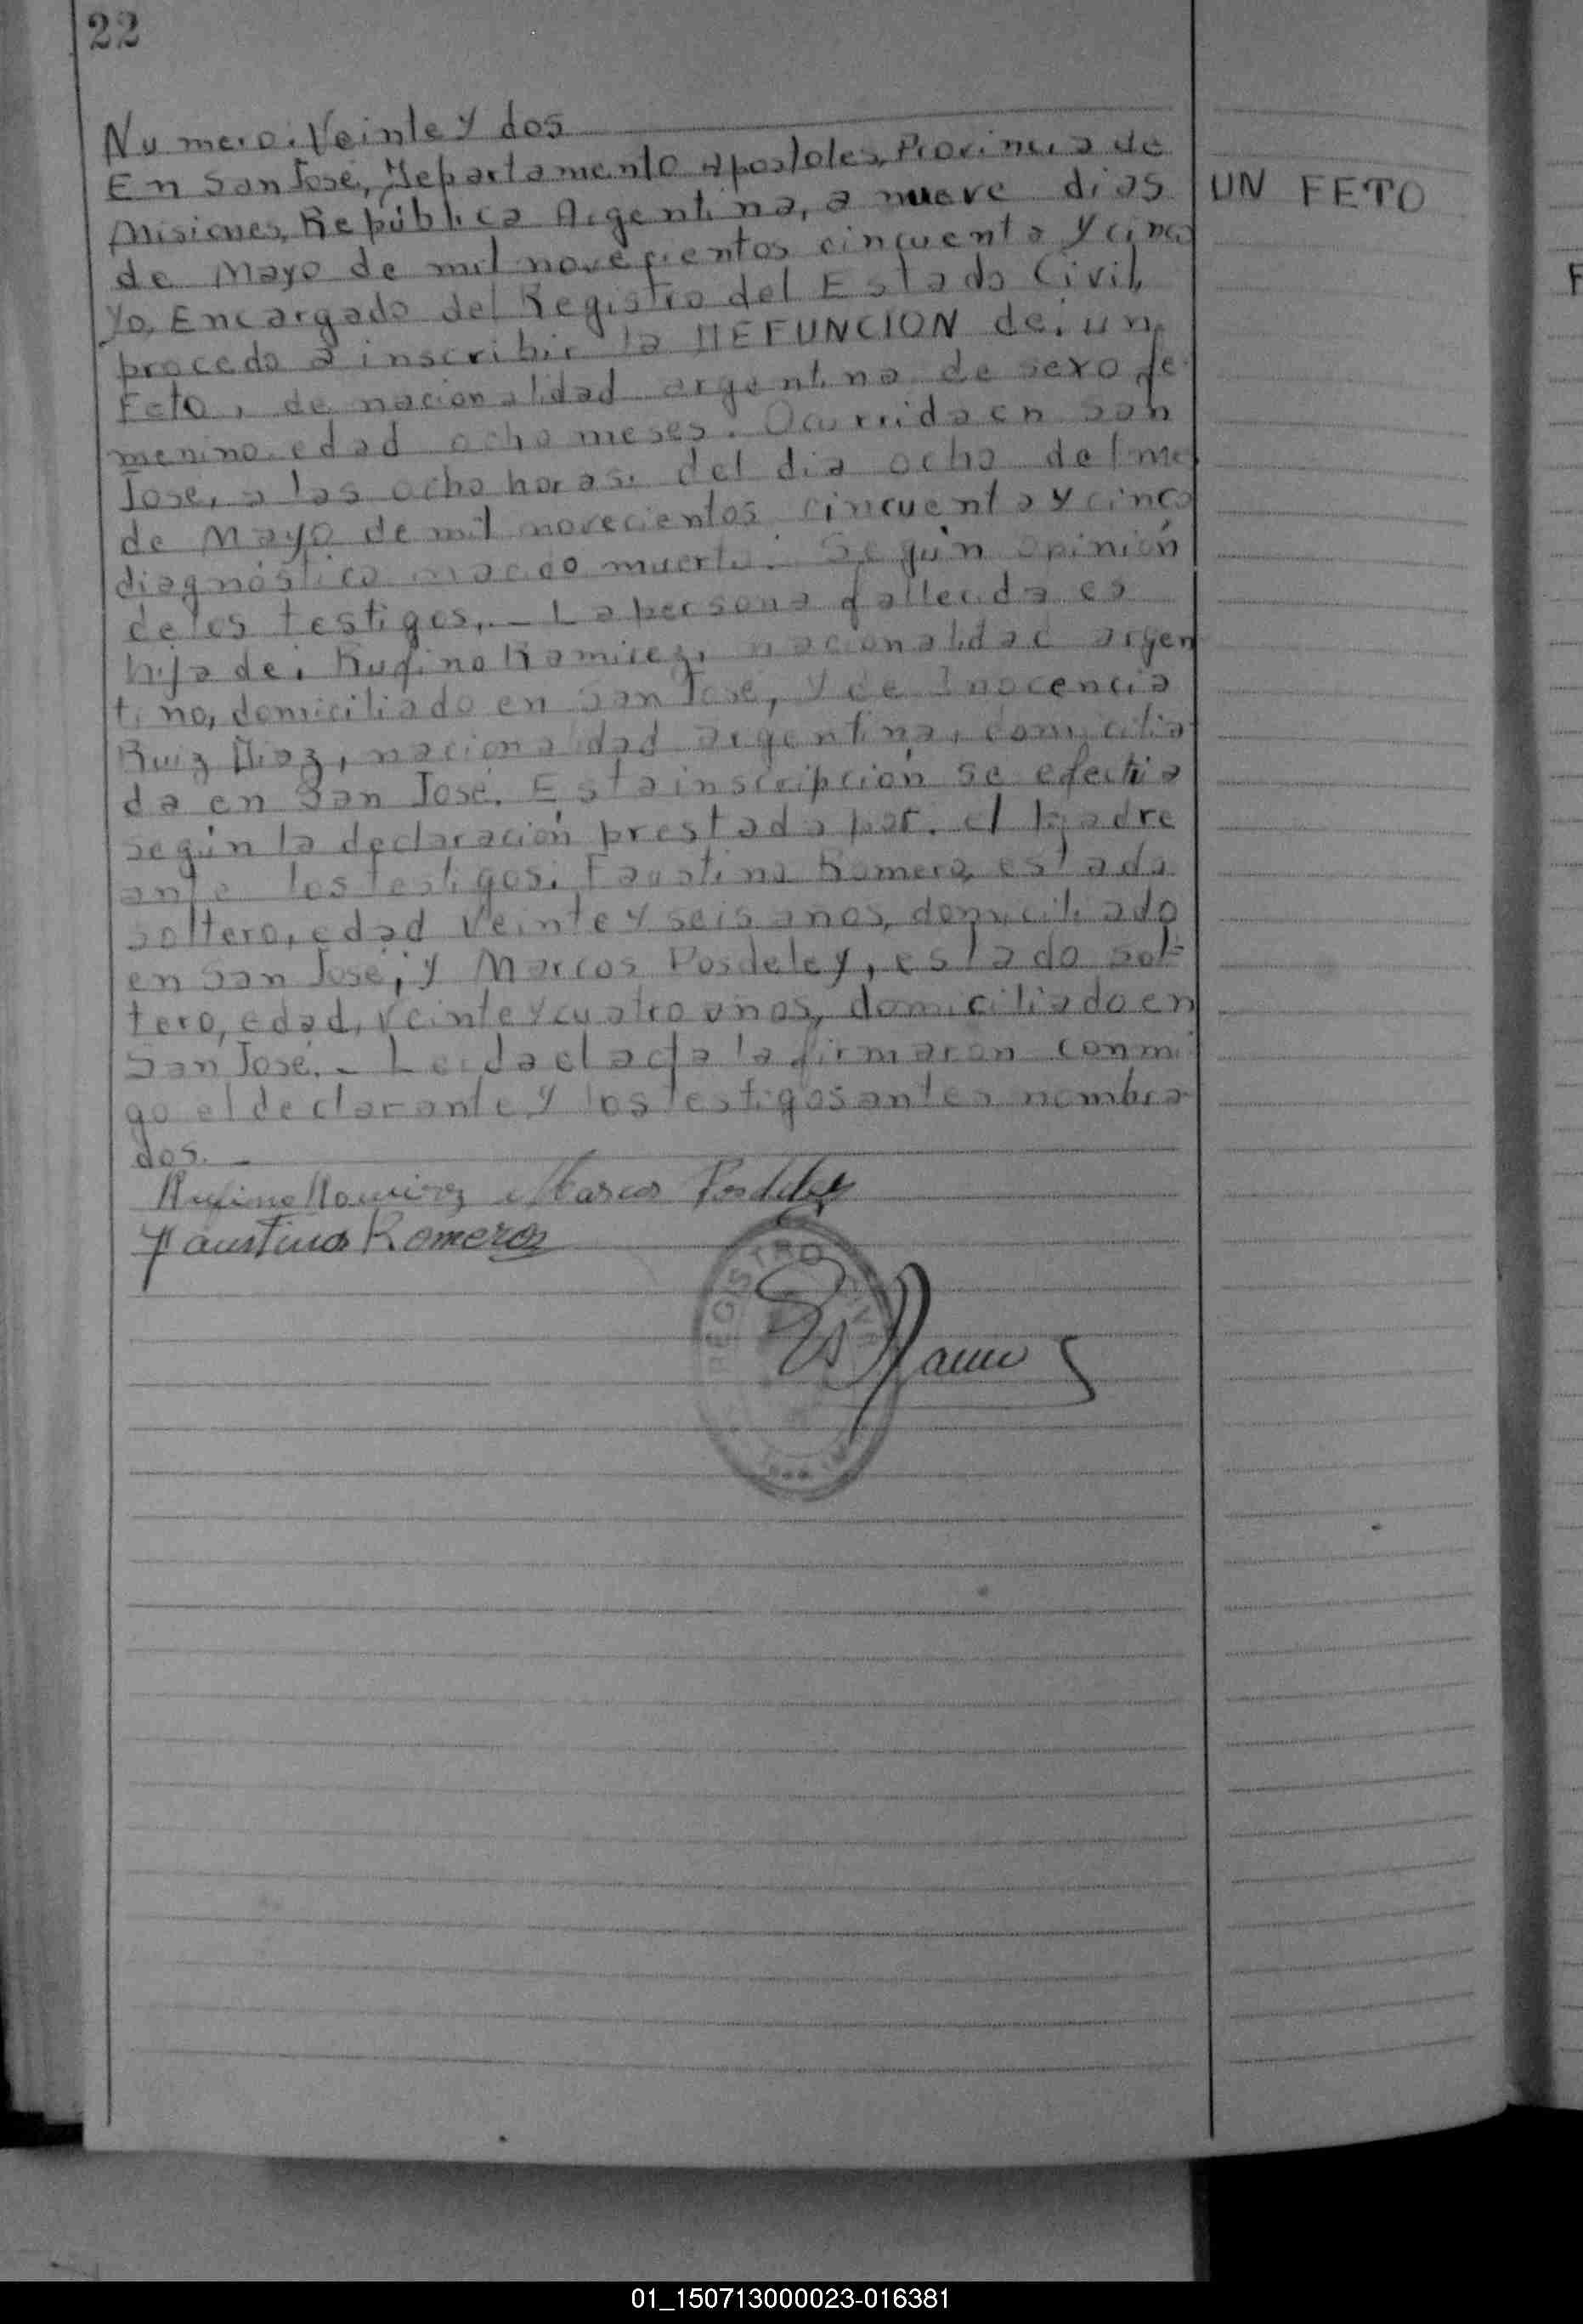 22
Numero. Veinte y dos
En San José, Departamento Apostoles, Provincia de
Misiones, República Argentina, a nueve dias
de Mayo de mil novecientos cincuenta y cinco
yo, Encargado del Registro del Estado Civil,
procedo a inscribir la DEFUNCION de. un
Feto, de nacionalidad argentina de sexo fe
menino edad ocho meses. Ocurrida en San
José, a las ocho horas. del dia ocho del mes
de Mayo de mil novecientos cincuenta y cinco
diagnóstico nacido muerto. Según opinión
de los testigos,.- La persona fallecida es
hija de. Rufino Ramirez, nacionalidad argen
tino, domiciliado en San José, y de Inocencia
Ruiz Diaz, nacionalidad argentina, domicilia
da en San José. Esta inscripción se efectúa
según la declaración prestada por. el padre
ante los testigos. Faustino Romero, estado
soltero, edad veinte y seis anos, domiciliado
en San José; y Marcos Posdeley, estado sol-
tero, edad, veinte y cuatro años, domiciliado en
San José. - Leida el acta la firmaron conmi
go el declarante y los testigos antes nombra
dos. -
Rufino Ramirez Marcos Posdeley
Faustino Romero
REGISTRO CIVIL
UN FETO
F
01_150713000023-016381